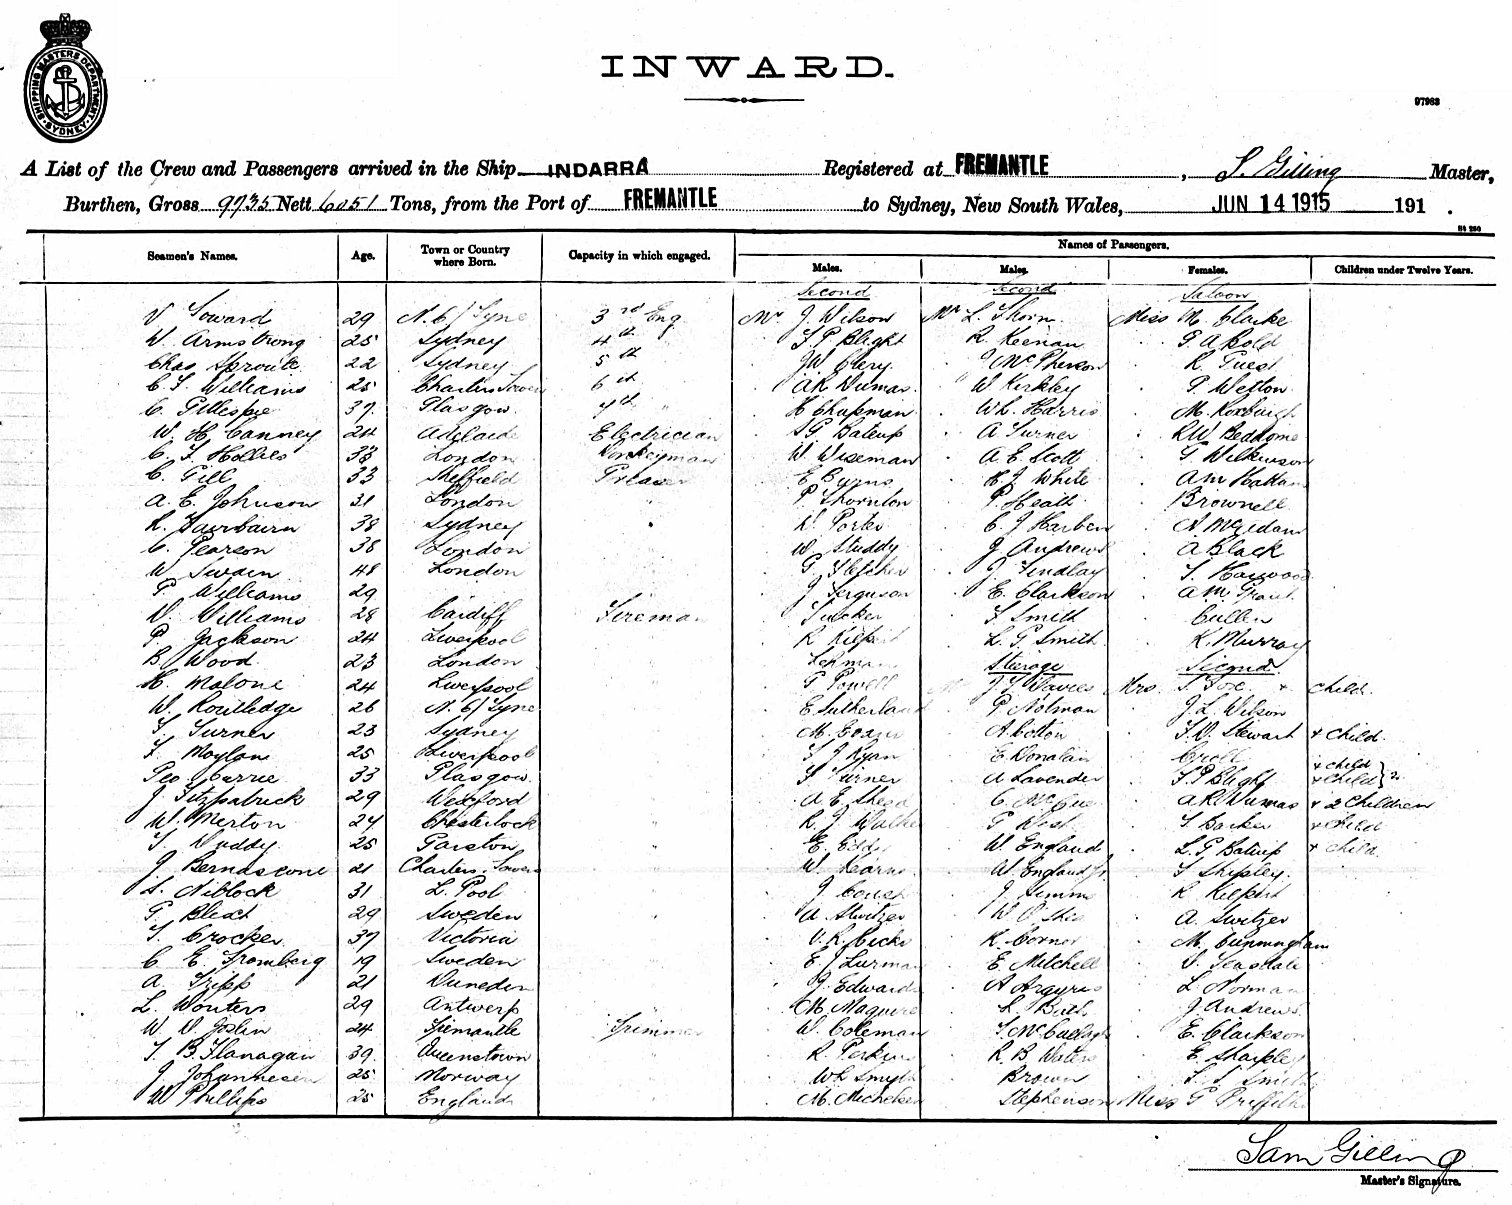 SHIPPING MASTERS DEPARTMENT
SYDNEY
INWARD.
97963
A List of the Crew and Passengers arrived in the Ship INDARRA Registered at FREMANTLE, S. Gilling Master,
Burthen, Gross 9735 Nett 6051 Tons, from the Port of FREMANTLE to Sydney, New South Wales, JUN 14 1915 191 .
Names of Passengers.
Seamen's Names. Age. Town or Country where Born. Capacity in which engaged. Males. Males. Females. Children under Twelve Years.
Second Second Saloon
V Soward 29 N. C/ Tyne 3rd Eng Mr J. Wilson Mr L. Thorn Miss M. Clarke
W. Armstrong 25 Sydney 4th T. P. Blight R. Keenan
Chas Sproule 22 Sydney 5th J W Clery J McPherson R. Guest
C. T. Williams 25 Charters Towers 6th A R Dumas W Kirkley P Wetton
C. Gillespie 37 Glasgow 7th H Chapman W L. Harris M. Roxburgh
W. H. Canney 24 Adelaide Electrician S G Baterup A Turner R W Beddome
C. T. Hollies 33 London Donkeyman W Wiseman A. E. Scott G Wilkinson
C. Gill 33 Sheffield Greaser E Byrns H J White A M Hattam
A. E. Johnson 31 London P Thornton P. Heath Brownell
R. Fairbairn 38 Sydney W Porter C. J Harben
C. Pearson 38 London W Studdy J Andrews A Black
W Swain 48 London G Fletcher J Findlay T. Haywood
P Williams 29 J Ferguson E. Clarkson A M. Grant
D. Williams 28 Cardiff Fireman Tucker F Smith Cullen
P. Jackson 24 Liverpool R Kilpert L. G Smith K. Murray
B Wood 23 London Lehman Steerage Second
H. Malone 24 Liverpool G Powell J. T. Davies Mrs. S. Foxe + child.
W. Routledge 26 N. C/ Tyne E Sutherland P Notman J. L. Wilson
T. Turner 23 Sydney M. Evans A Cotton T. D. Stewart + Child.
F. Moylan 25 Liverpool T J Ryan E Donalain Croll + child
Geo Currie 33 Glasgow T Turner A Lavender T. P Blight + Child } 2
J. Fitzpatrick 29 Wexford A E Shega C McCue A R Dumas + 2 Children
W. Merton 24 Chesterlock R J Walke P West T Barker + Child
T. Duddy 25 Garston E Eddy W England L. G Baterup + Child
J Bernascone 21 Charters Towers W Kearns W. England Jr. T Shipley
S. Niblock 31 L. Pool J Couch J Simms R Kilpert
G. Blixt 29 Sweden A Switzer W O Shea A. Switzer
T. Crocker 37 Victoria V. R. Hicks R. Connor M. Cunningham
C E. Fromberg 19 Sweden E J Lurman E Mitchell V. Teasdale
A. Tripp 21 Dunedin G. Edwards A Argyris L Norman
L. Wouters 29 Antwerp M. Maguire L Buth J. Andrews
W D Joslin 24 Fremantle Trimmer W. Coleman T. McCullagh E. Clarkson
T. B. Flanagan 39 Queenstown R Perkins R B Waters E. Sharpley
J Johannesen 25 Norway W L Smyth Brown L. G Smith
W Phillips 25 England M. Michelsen Stephenson Miss G Griffiths
Sam Gilling
Master's Signature.